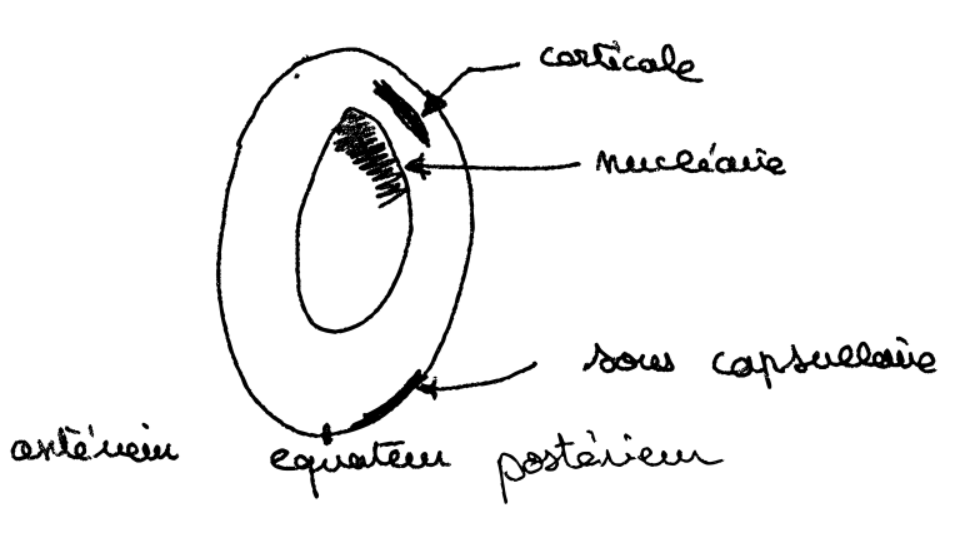 corticale
nucléaire
sous capsullaire
antérieur equateur postérieur